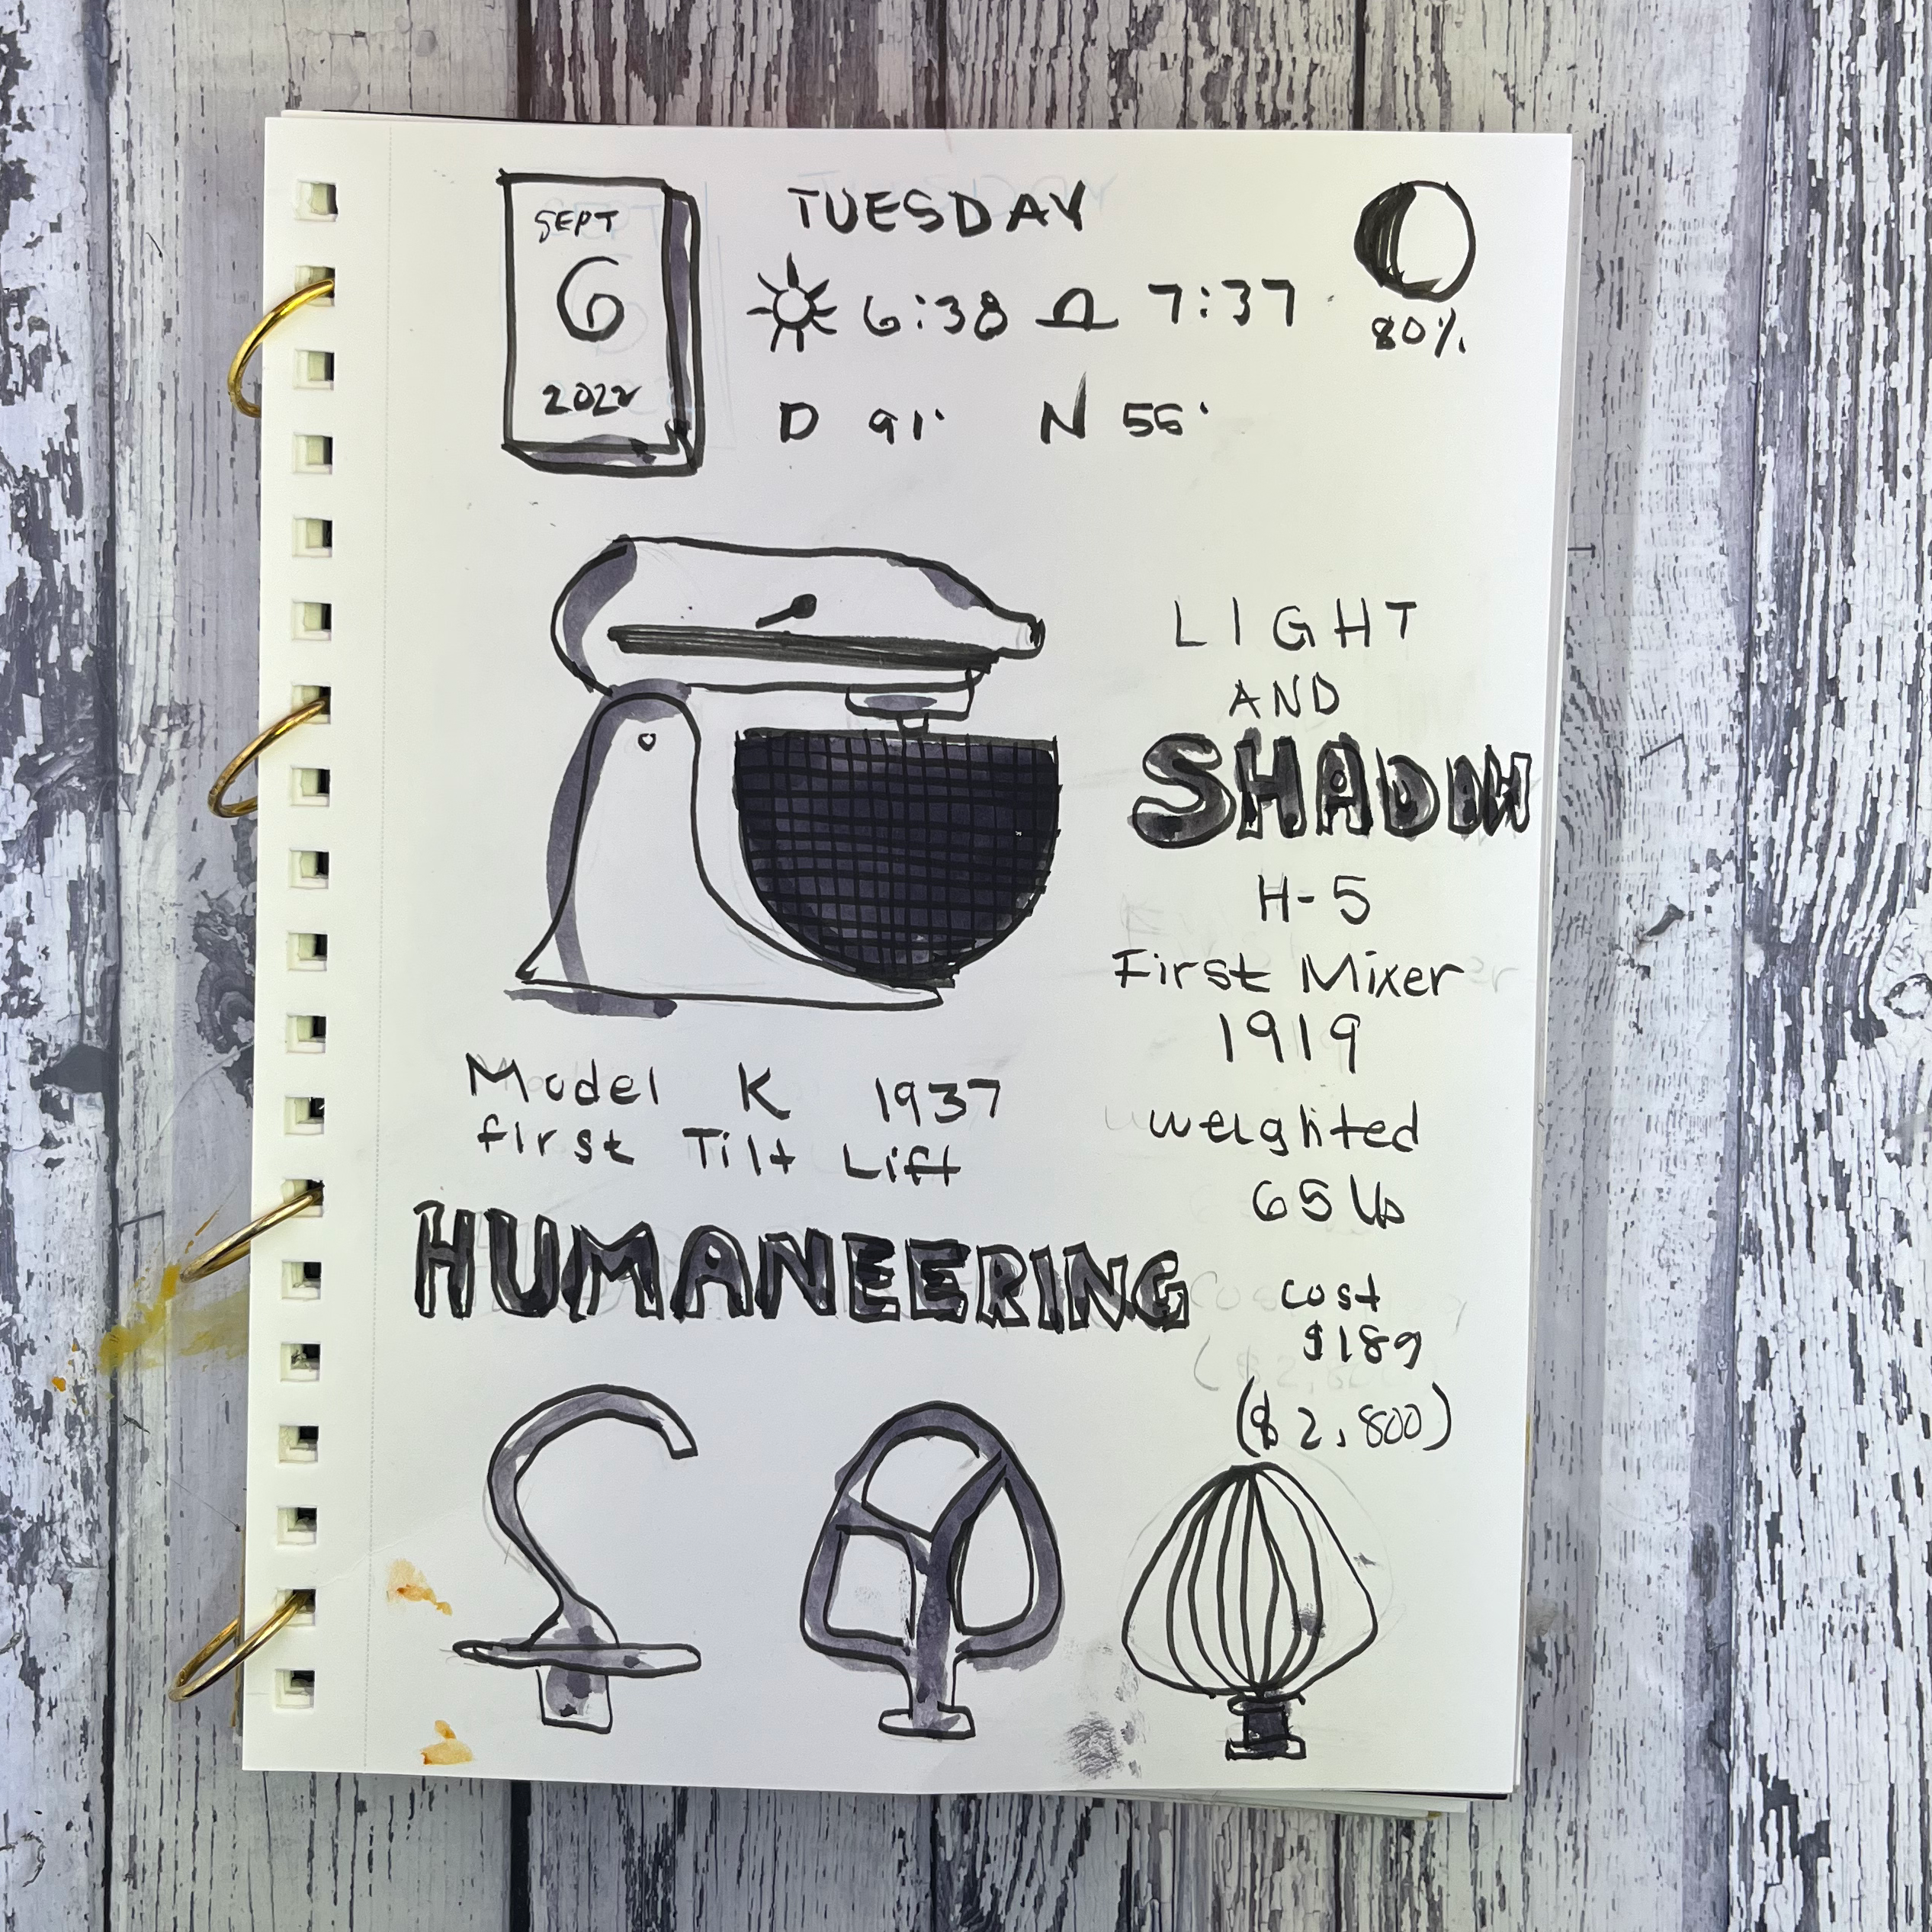 SEPT
6
2022
TUESDAY
6:38 7:37
80%
D 91° N 55°
LIGHT
AND
SHADOW
H-5
First Mixer
1919
weighted
65 lb
cost
$189
($2,800)
Model K 1937
first Tilt Lift
HUMANEERING